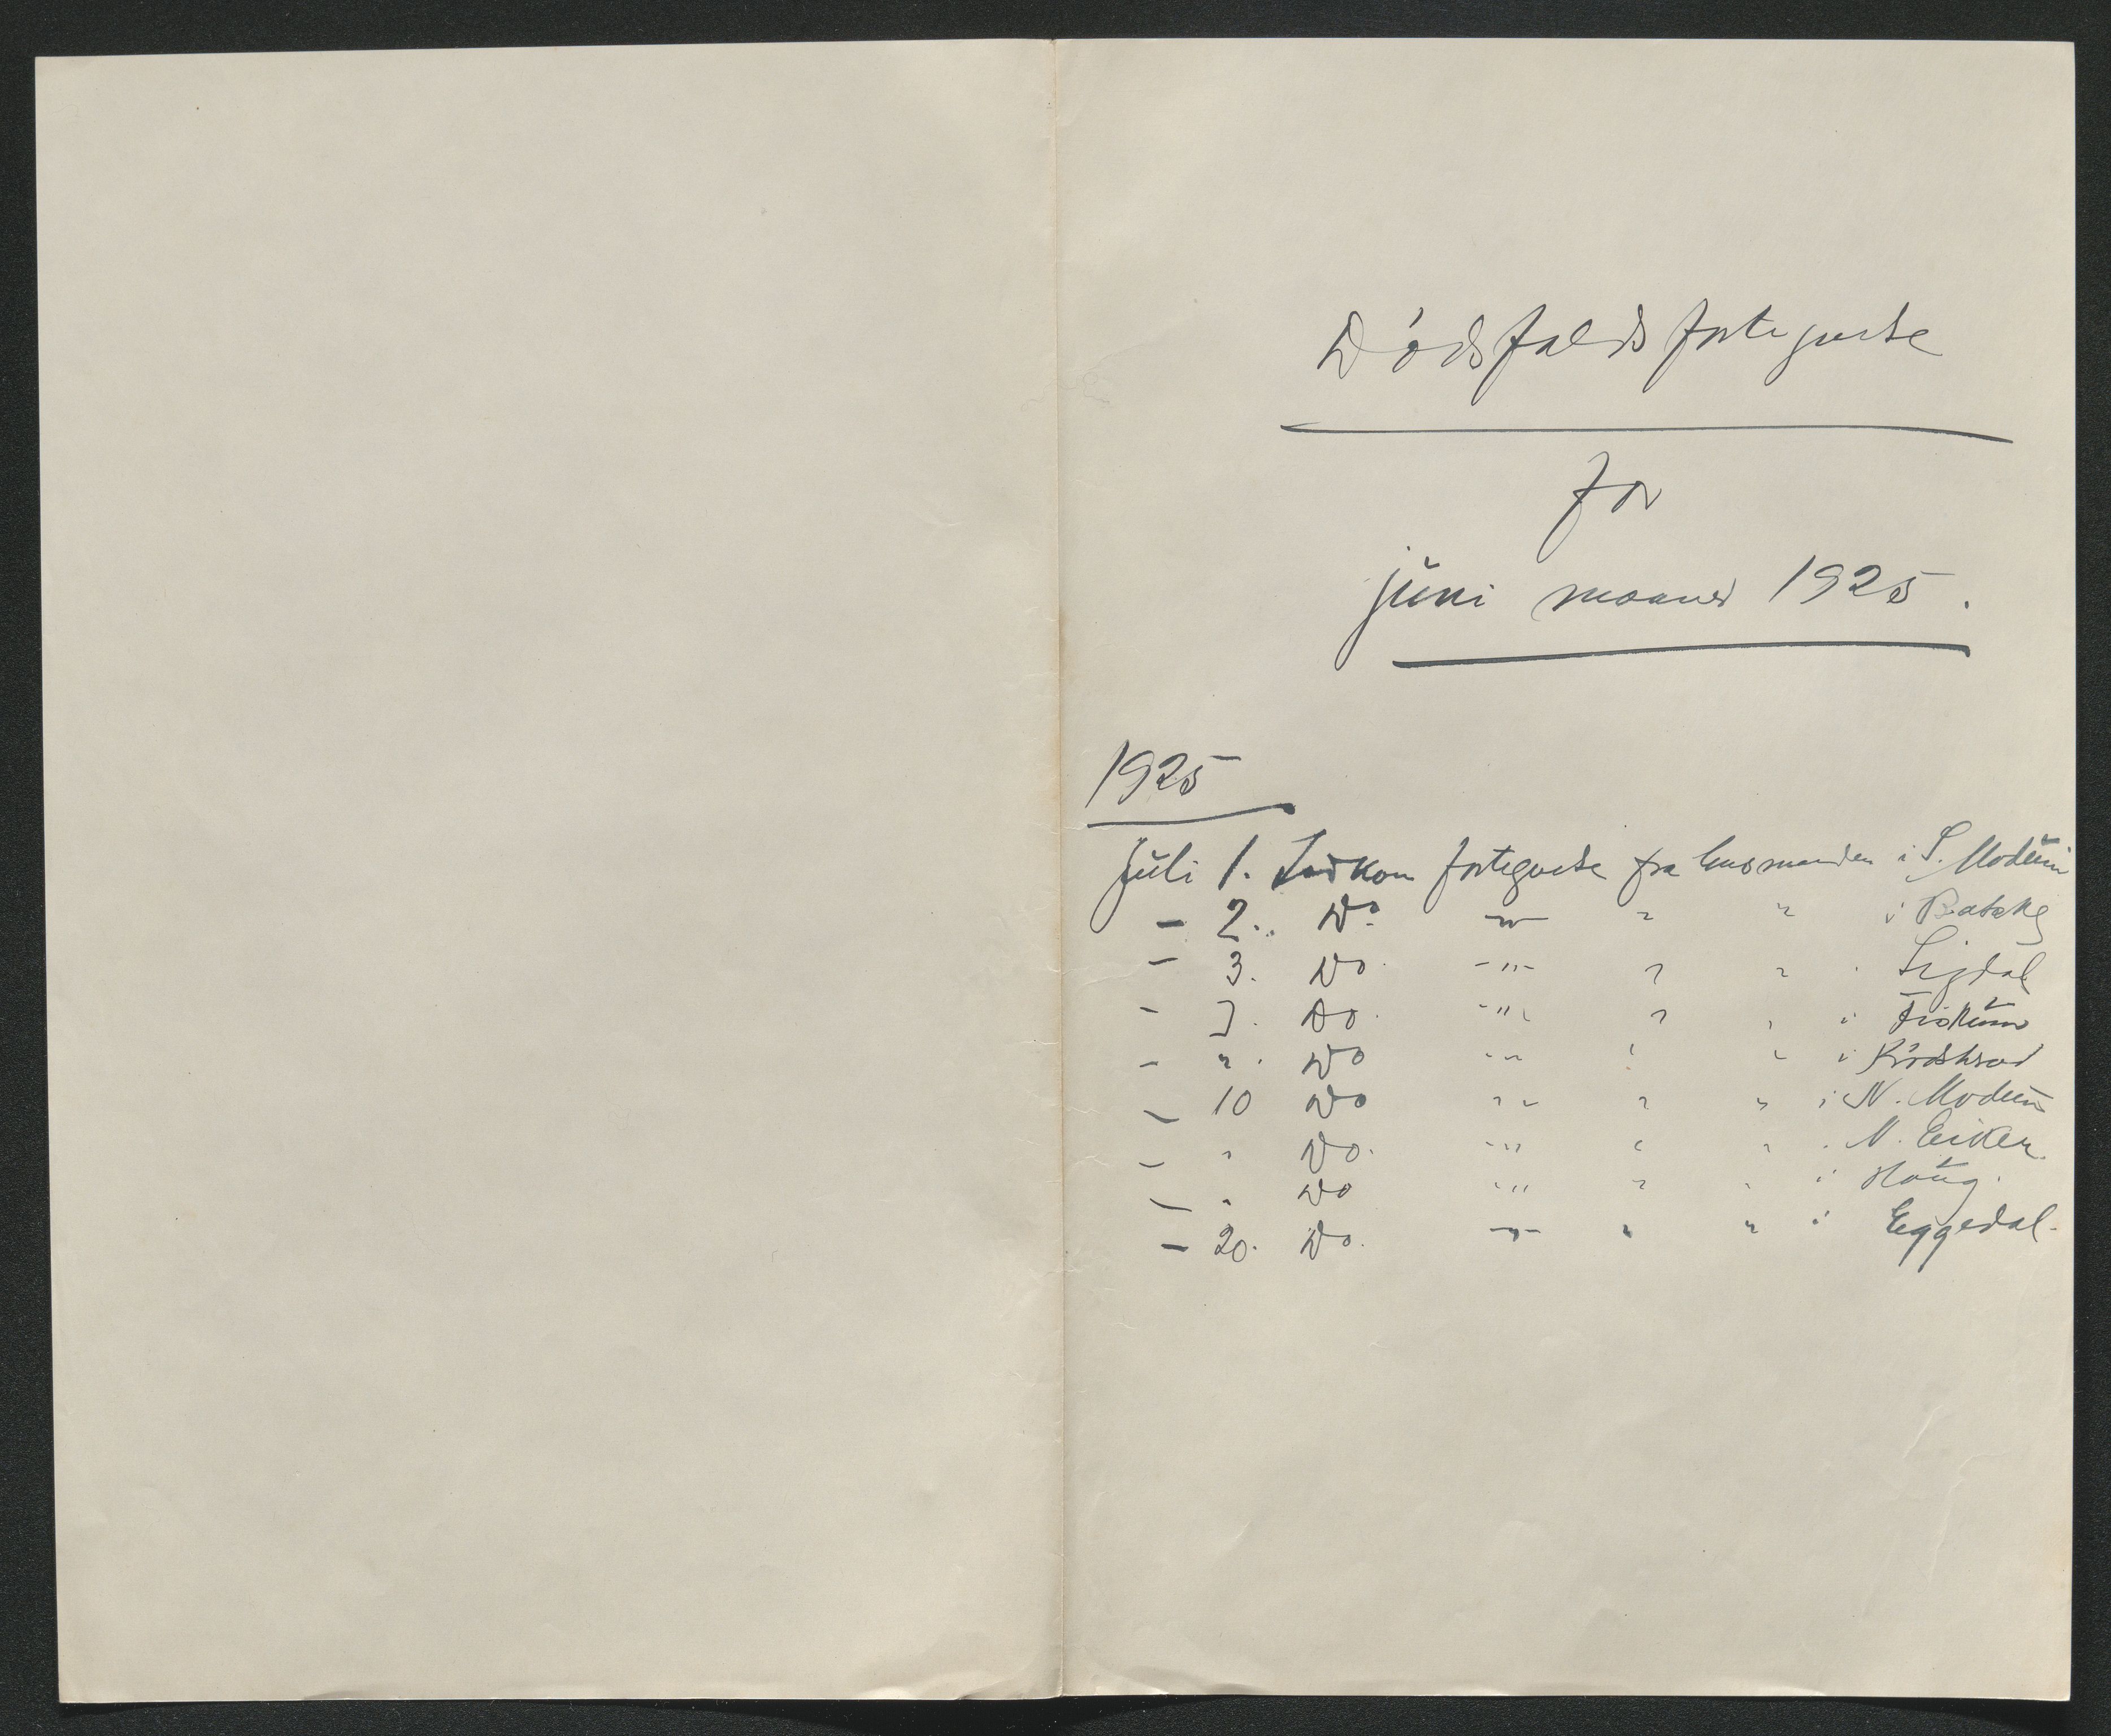 Dødsfaldsfortegnelse
for
juni maaned 1925.
1925
Juli 1. Indkom fortegnelse fra lensmanden i S. Modum
- 2. Do -"- " " i
- 3. Do. -"- " " Sigdal
- 7. Do. -"- " " i Fiskum
- ". Do -"- " " i Krødsherad
- 10 Do " " " i N. Modum
- " Do. -"- " " N. Eiker.
- " Do -"- " " i Haug.
- 20. Do. -"- " " i Eggedal.